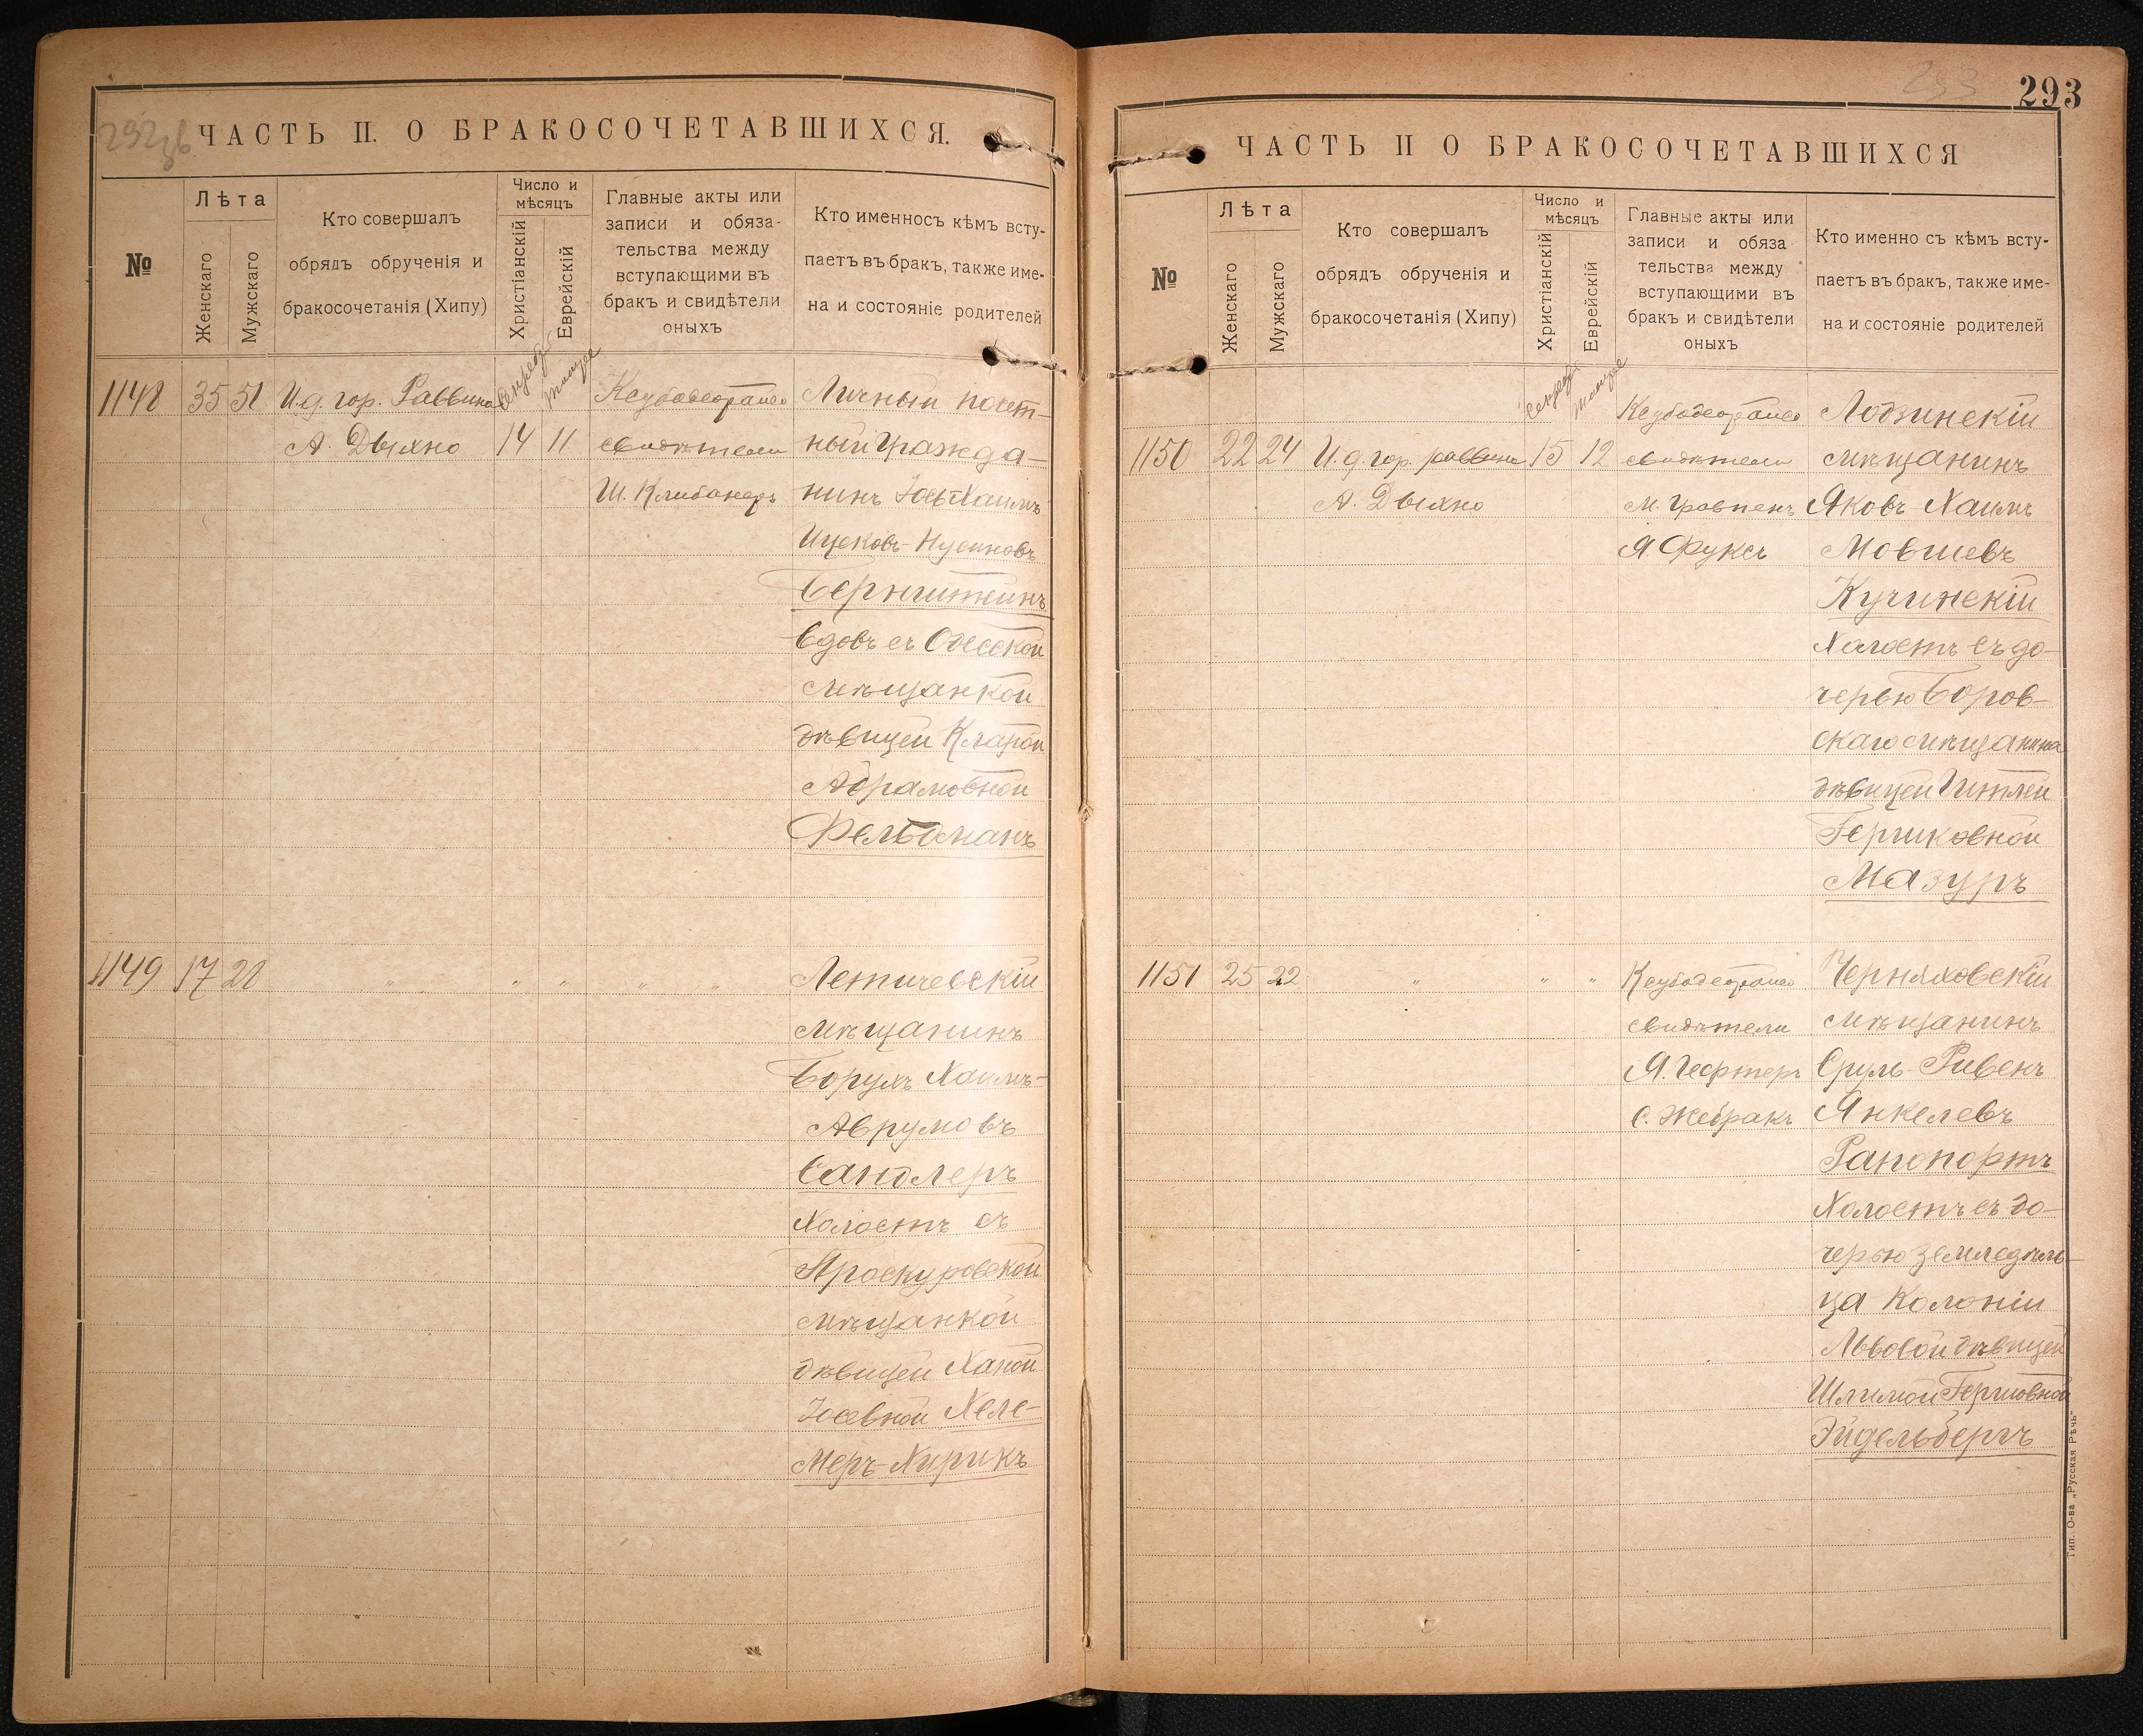 292об
ЧАСТЬ II. О БРАКОСОЧЕТАВШИХСЯ.
№
Лѣта
Женскаго
Мужскаго
Кто совершалъ
обрядъ обрученія и
бракосочетанія (Хипу)
Число и
мѣсяцъ
Христіанскій
Еврейскій
Главные акты или
записи и обяза-
тельства между
вступающими въ
бракъ и свидѣтели
оныхъ
Кто именно съ кѣмъ всту-
паетъ въ бракъ, также име-
на и состояніе родителей
1148 35 51 И.д. гор. Раввина
А. Дыхно
14 11
свидѣтели
Ш. Клибанеръ
Личный почет-
ный Гражда-
нинъ Іось Хаимъ
Ицековъ-Нусиновъ
Бернштейнъ
вдовъ съ Одесской
мѣщанкой
дѣвицей Кларой
Абрамовной
Фельдманъ
1149 17 20 " " " " "
Летичевскій
мѣщанинъ
Борухъ Хаимъ-
Аврумовъ
Сандлеръ
Холостъ съ
Проскуровской
мѣщанкой
дѣвицей Ханой
Іосевной Хеле-
меръ-Хирикъ
293
293
ЧАСТЬ II О БРАКОСОЧЕТАВШИХСЯ
№
Лѣта
Женскаго
Мужскаго
Кто совершалъ
обрядъ обрученія и
бракосочетанія (Хипу)
Число и
мѣсяцъ
Христіанскій
Еврейскій
Главные акты или
записи и обяза
тельства между
вступающими въ
бракъ и свидѣтели
оныхъ
Кто именно съ кѣмъ всту-
паетъ въ бракъ, также име-
на и состояніе родителей
1150 22 24 И.д. гор. раввина
А. Дыхно
15 12
свидѣтели
Я. Фуксъ
Лодзинскій
мѣщанинъ
Яковъ-Хаимъ
Мовшевъ
Кучинскій
Холостъ съ до-
черью Боров-
скаго мѣщанина
дѣвицей Гитлей
Гершковной
Мазуръ
1151 25 22 " " "
свидѣтели
Я. Гефтеръ
С. Жебракъ
Черняховскій
мѣщанинъ
Сруль-Рувенъ
Янкелевъ
Рапопортъ
Холостъ съ до-
черью земледѣль-
ца Колоніи
Львовой дѣвицей
Шлимой Гершовной
Эйдельбергъ
Тип. О-ва „Русская Рѣчь"